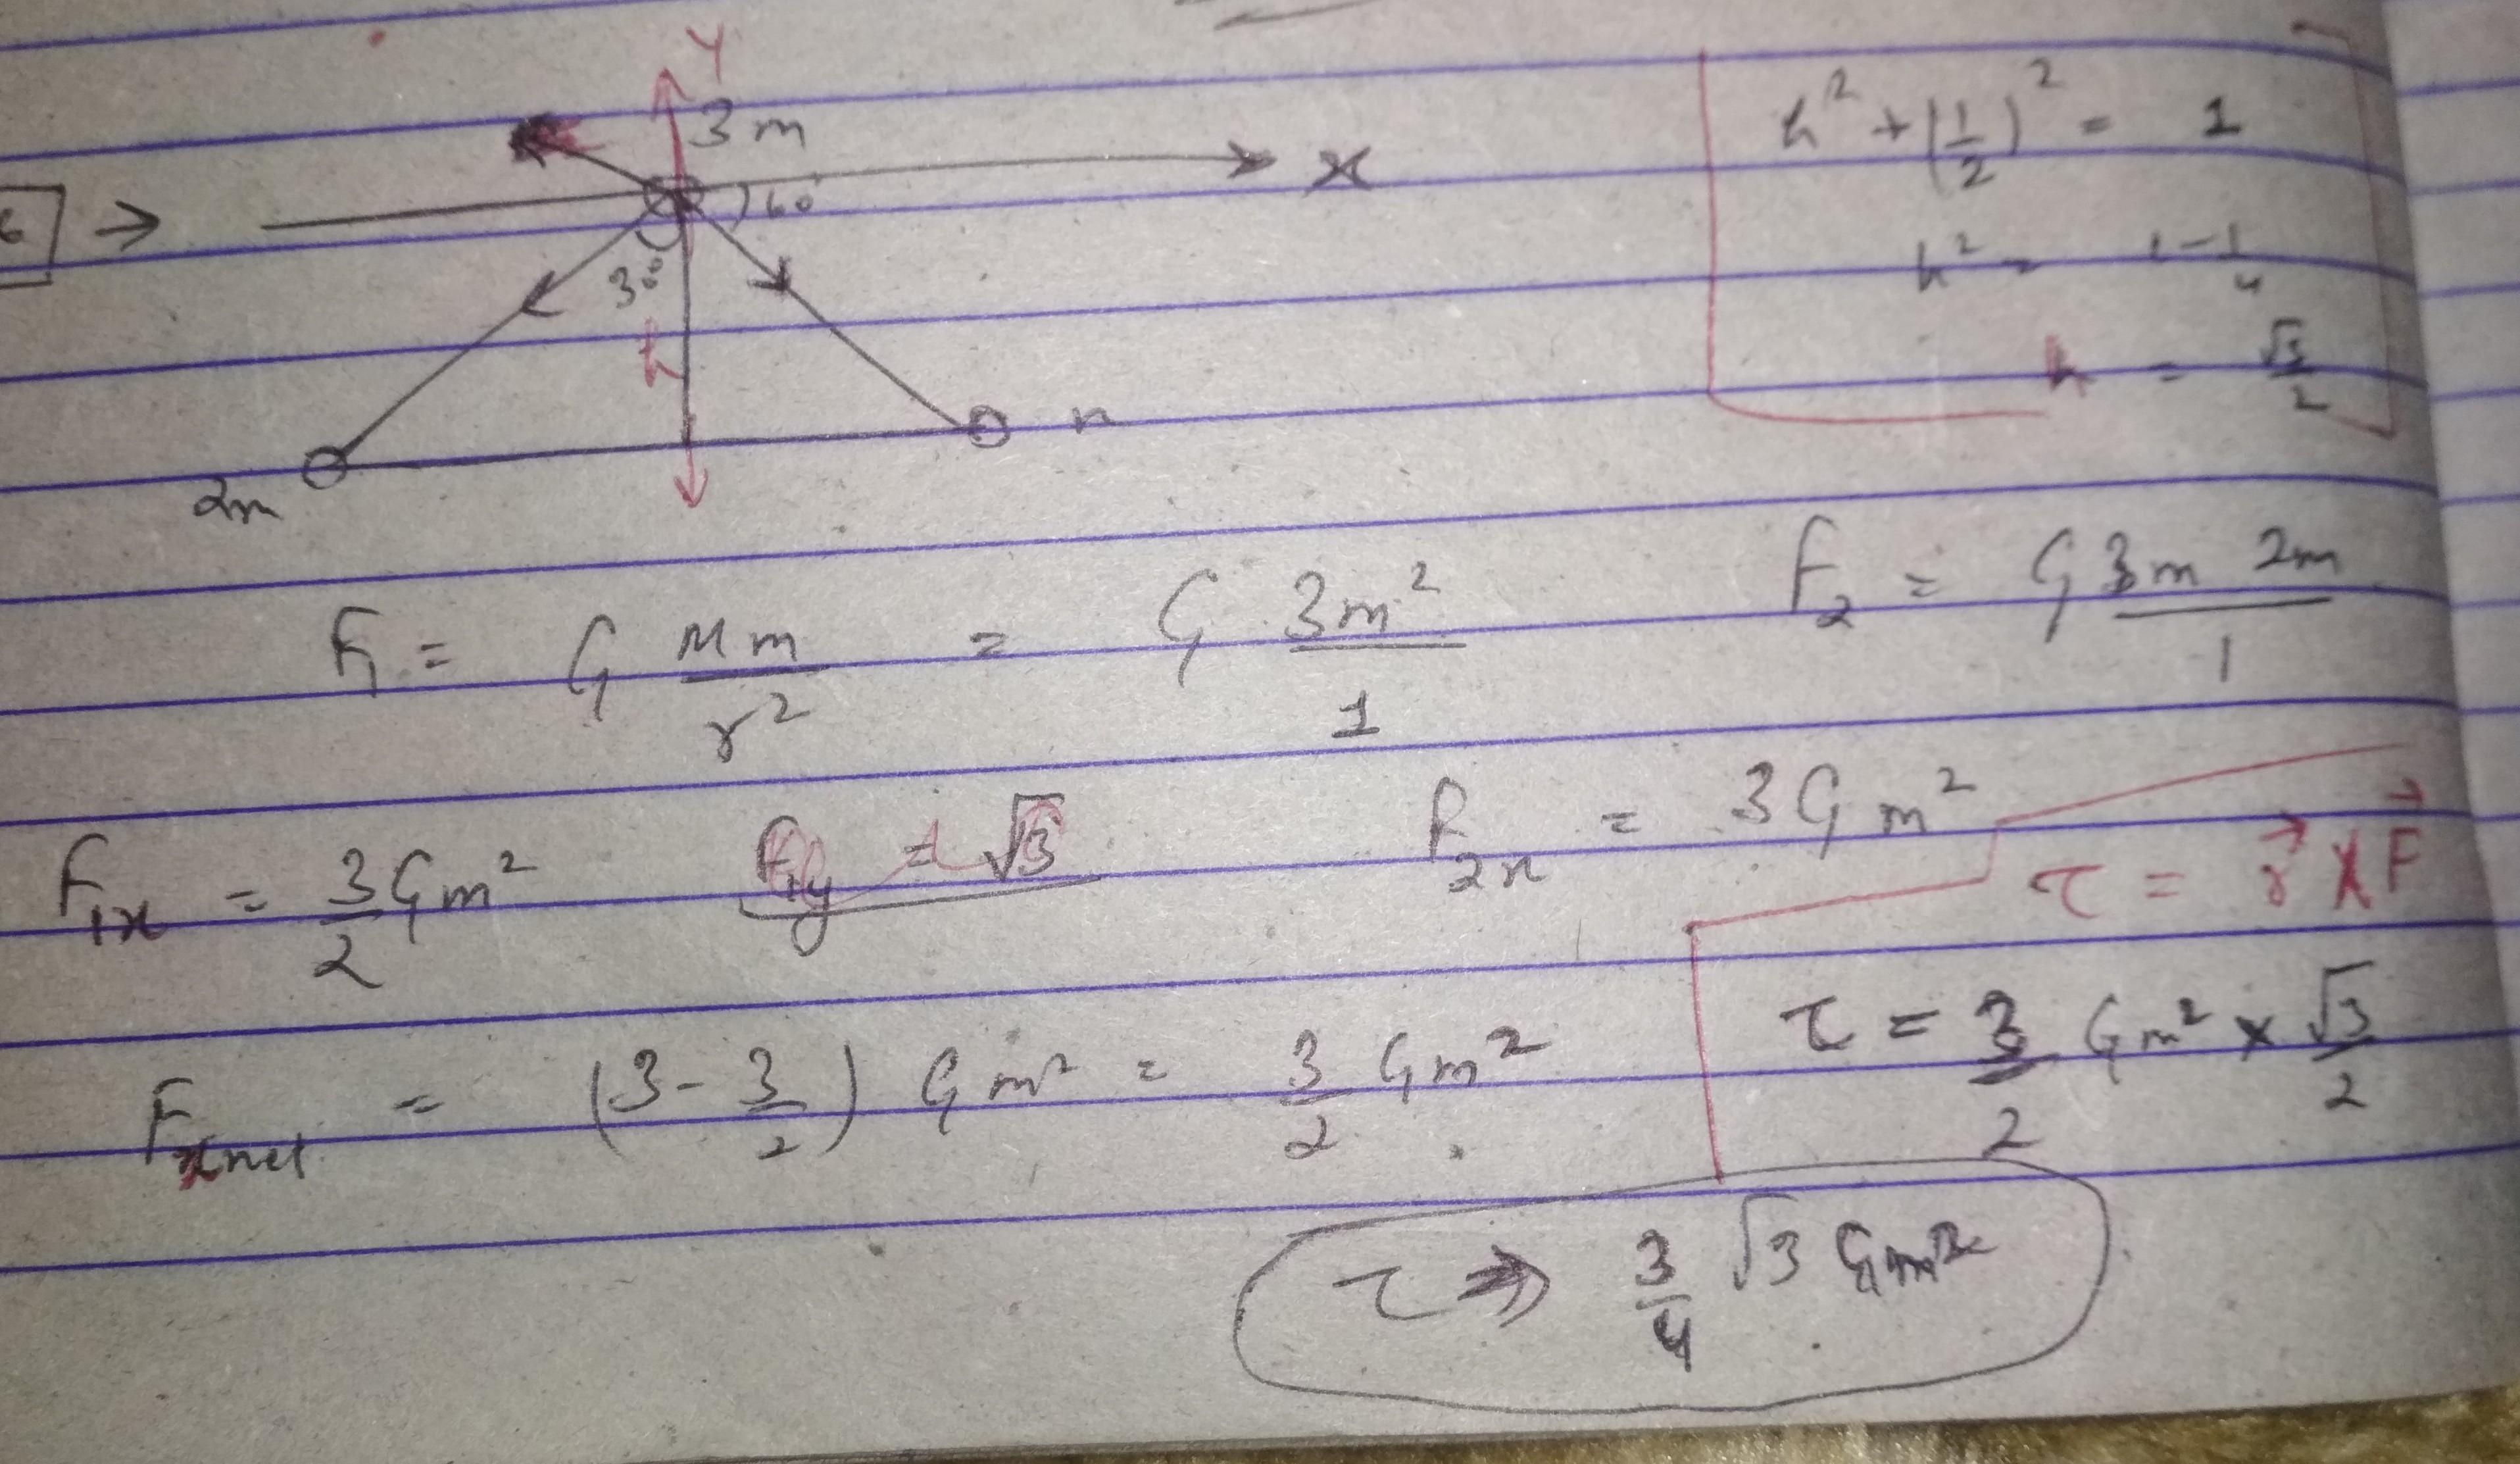 Y
3m
x
6 →
60°
30°
h
2m
m
h² + (1/2)² = 1
h² = 1 - 1/4
h = √3/2
F₁ = G Mm/r² = G 3m²/1
F₂ = G 3m 2m/1
F₁ₓ = 3/2 Gm²
F₁y = √3
F₂ₓ = 3Gm²
τ = r⃗ × F⃗
Fₓnet = (3 - 3/2) Gm² = 3/2 Gm²
τ = 3/2 Gm² × √3/2
τ ⇒ 3/4 √3 Gm²